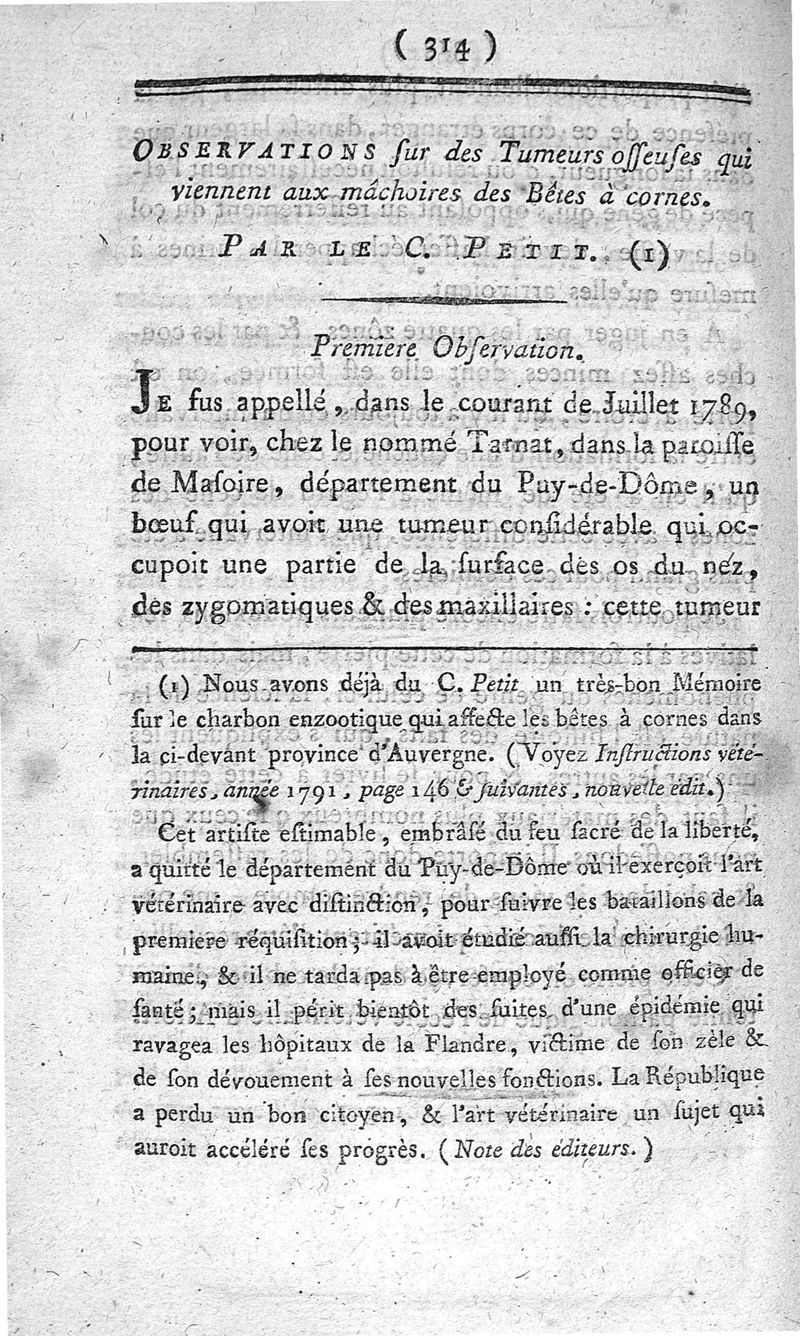 ( 314 )
OBSERVATIONS ſur des Tumeurs oſſeuſes qui
viennent aux mâchoires des Bêtes à cornes.
PAR LE C. PETIT. (1)
Premiere Obſervation.
JE fus appellé, dans le courant de Juillet 1789,
pour voir, chez le nommé Tarnat, dans la paroiſſe
de Maſoire, département du Puy-de-Dôme, un
bœuf qui avoit une tumeur conſidérable qui oc-
cupoit une partie de la ſurface des os du néz,
des zygomatiques & des maxillaires : cette tumeur
(1) Nous avons déjà du C. Petit un très-bon Mémoire
ſur le charbon enzootique qui affecte les bêtes à cornes dans
la ci-devant province d'Auvergne. (Voyez Inſtructions vété-
rinaires, année 1791, page 146 & ſuivantes, nouvelle édit.)
Cet artiſte eſtimable, embrâſé du feu ſacré de la liberté,
a quitté le département du Puy-de-Dôme où il exerçoit l'art
vétérinaire avec diſtinction, pour ſuivre les bataillons de la
premiere réquiſition ; il avoit étudié auſſi la chirurgie hu-
maine, & il ne tarda pas à être employé comme officier de
ſanté ; mais il périt bientôt des ſuites d'une épidémie qui
ravagea les hôpitaux de la Flandre, victime de ſon zèle &
de ſon dévouement à ſes nouvelles fonctions. La République
a perdu un bon citoyen, & l'art vétérinaire un ſujet qui
auroit accéléré ſes progrès. (Note des éditeurs.)